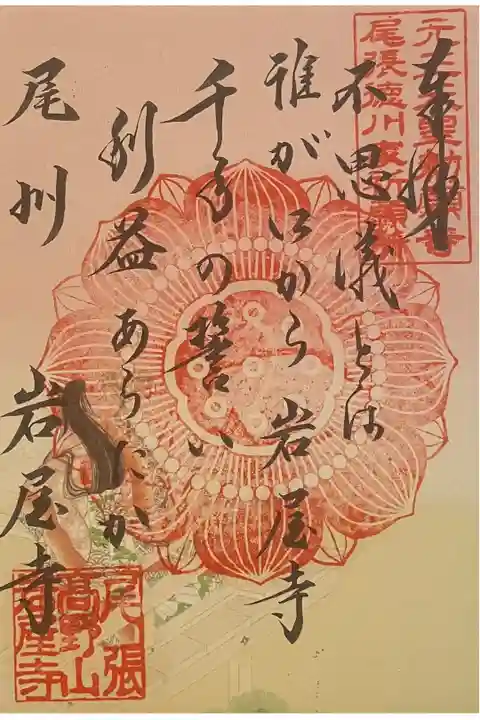 奉拝
不思議とは
誰がいふから岩屋寺
千手の誓い
利益あらたか
尾州 岩屋寺
尾張徳川家祈願所
尾張
高野山
岩屋寺